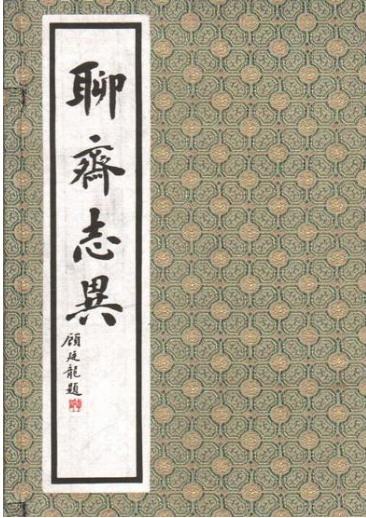 聊齋志異
顧廷龍題